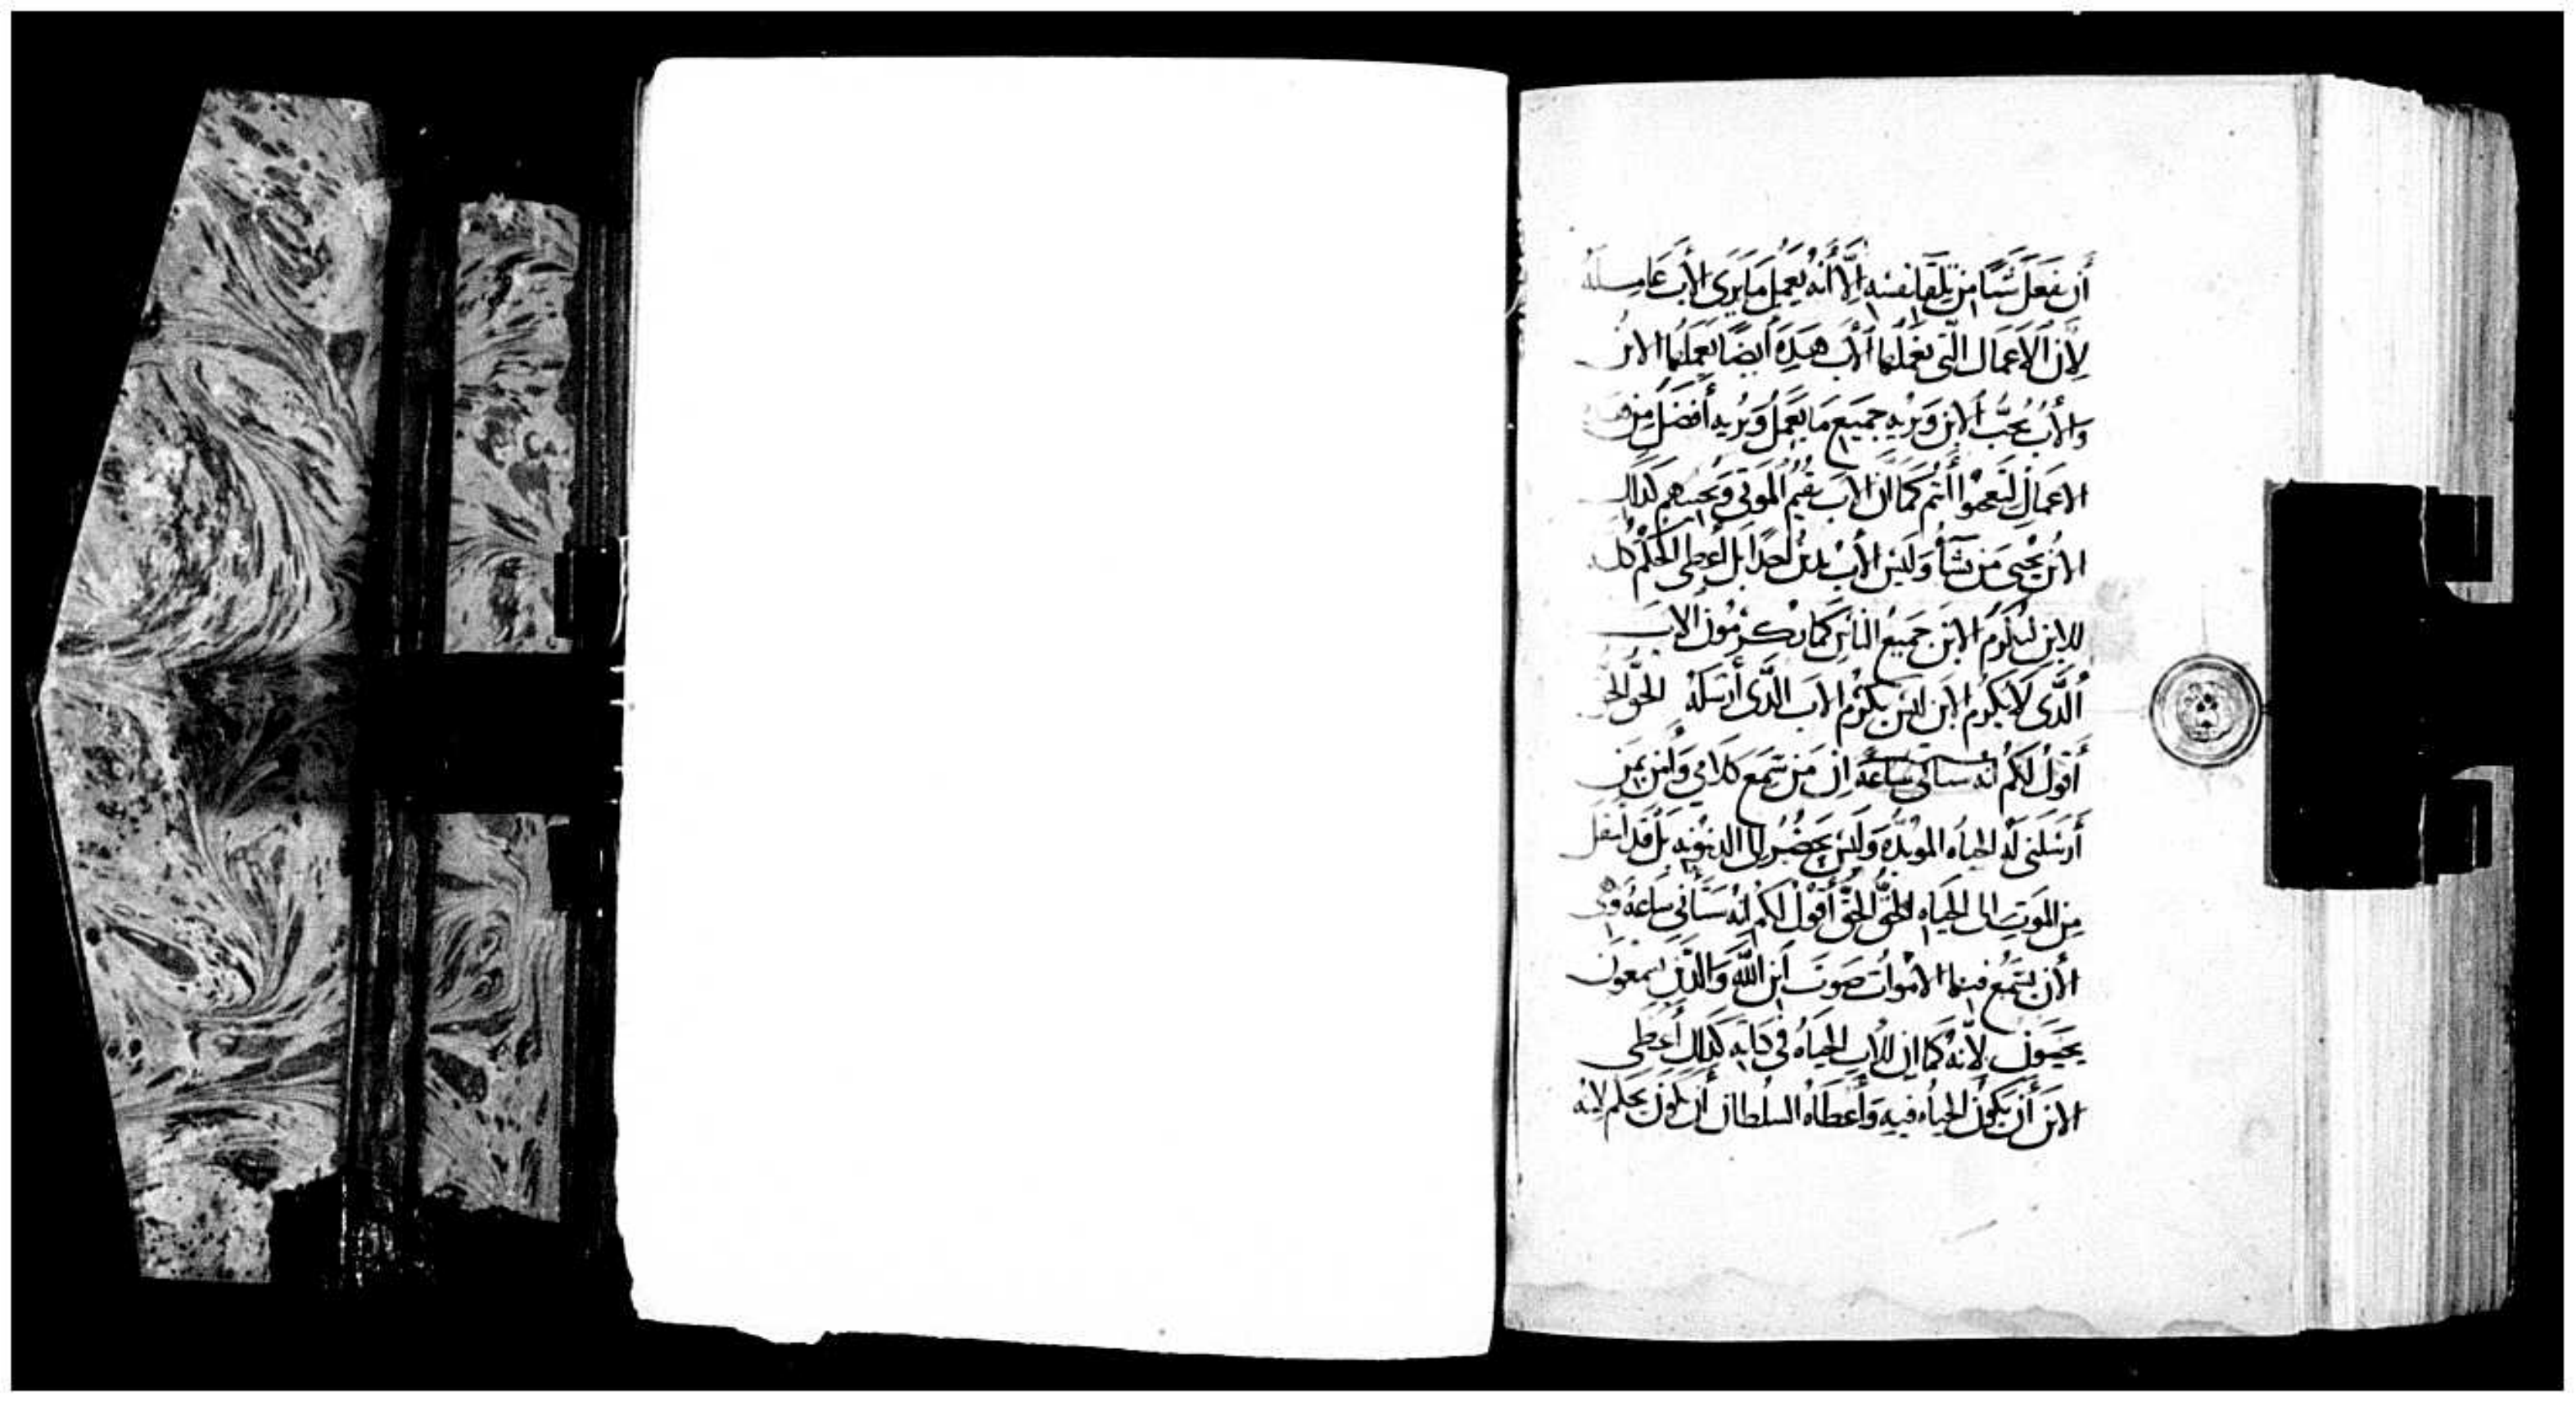 أن يفعل شيئًا من تلقا نفسه إلَّا أنه يعمل ما يرى الأب عامله
لأن الأعمال التي يعملها الأب هذه أيضًا يعملها الابن
والأب يحبُّ الابن ويريه جميع ما يعمل ويريه أفضل من هذه
الاعمال لتعجبوا أنتم كما ان الاب يقيم الموتى ويحييهم كذلك
الابن يحيى من يشأ وليس الأب يدين أحدًا بل أعطى الحكم كله
للابن ليكرم الابن جميع الناس كما يكرمون الاب
الَّذى لا يكرم الابن ليس يكرم الاب الَّذى أرسله الحق الحق
أقول لكم انه ستاتى ساعة ان من يسمع كلامى وامن بمن
أرسلنى له الحياه الموبده وليس يحضر الى الدينونه بل قد انتقل
من الموت الى الحياه الحقّ الحقّ أقول لكم انه ستأتى ساعة وهى
الأن يسمع فيها الاموات صوت ابن الله والذين يسمعون
يحيون لأنه كما ان للأب الحياه فى ذاته كذلك أعطى
الابن أن يكون الحياه فيه وأعطاه السلطان أن يكون يحكم لانه